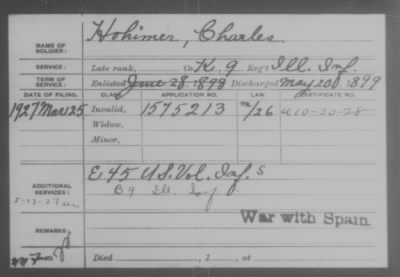 NAME OF SOLDIER: Hohimer, Charles
SERVICE: Late rank, Co K. 9 Reg't Ill. Inf.
TERM OF SERVICE: Enlisted June 28, 1898 Discharged May 20, 1899
DATE OF FILING. CLASS. APPLICATION NO. LAW. CERTIFICATE NO.
1927 Mar 25 Invalid, 1575213 m/26 a 10-30-28
Widow,
Minor,
ADDITIONAL SERVICES: E, 45 U.S. Vol. Inf. s
5-17-27 B 9 Ill. Inf
War with Spain
REMARKS:
Died , 1 , at